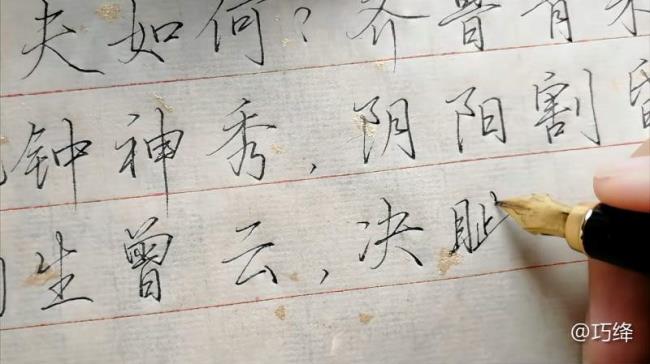 夫如何？齐鲁青未
钟神秀，阴阳割昏
生曾云，决
@巧绛